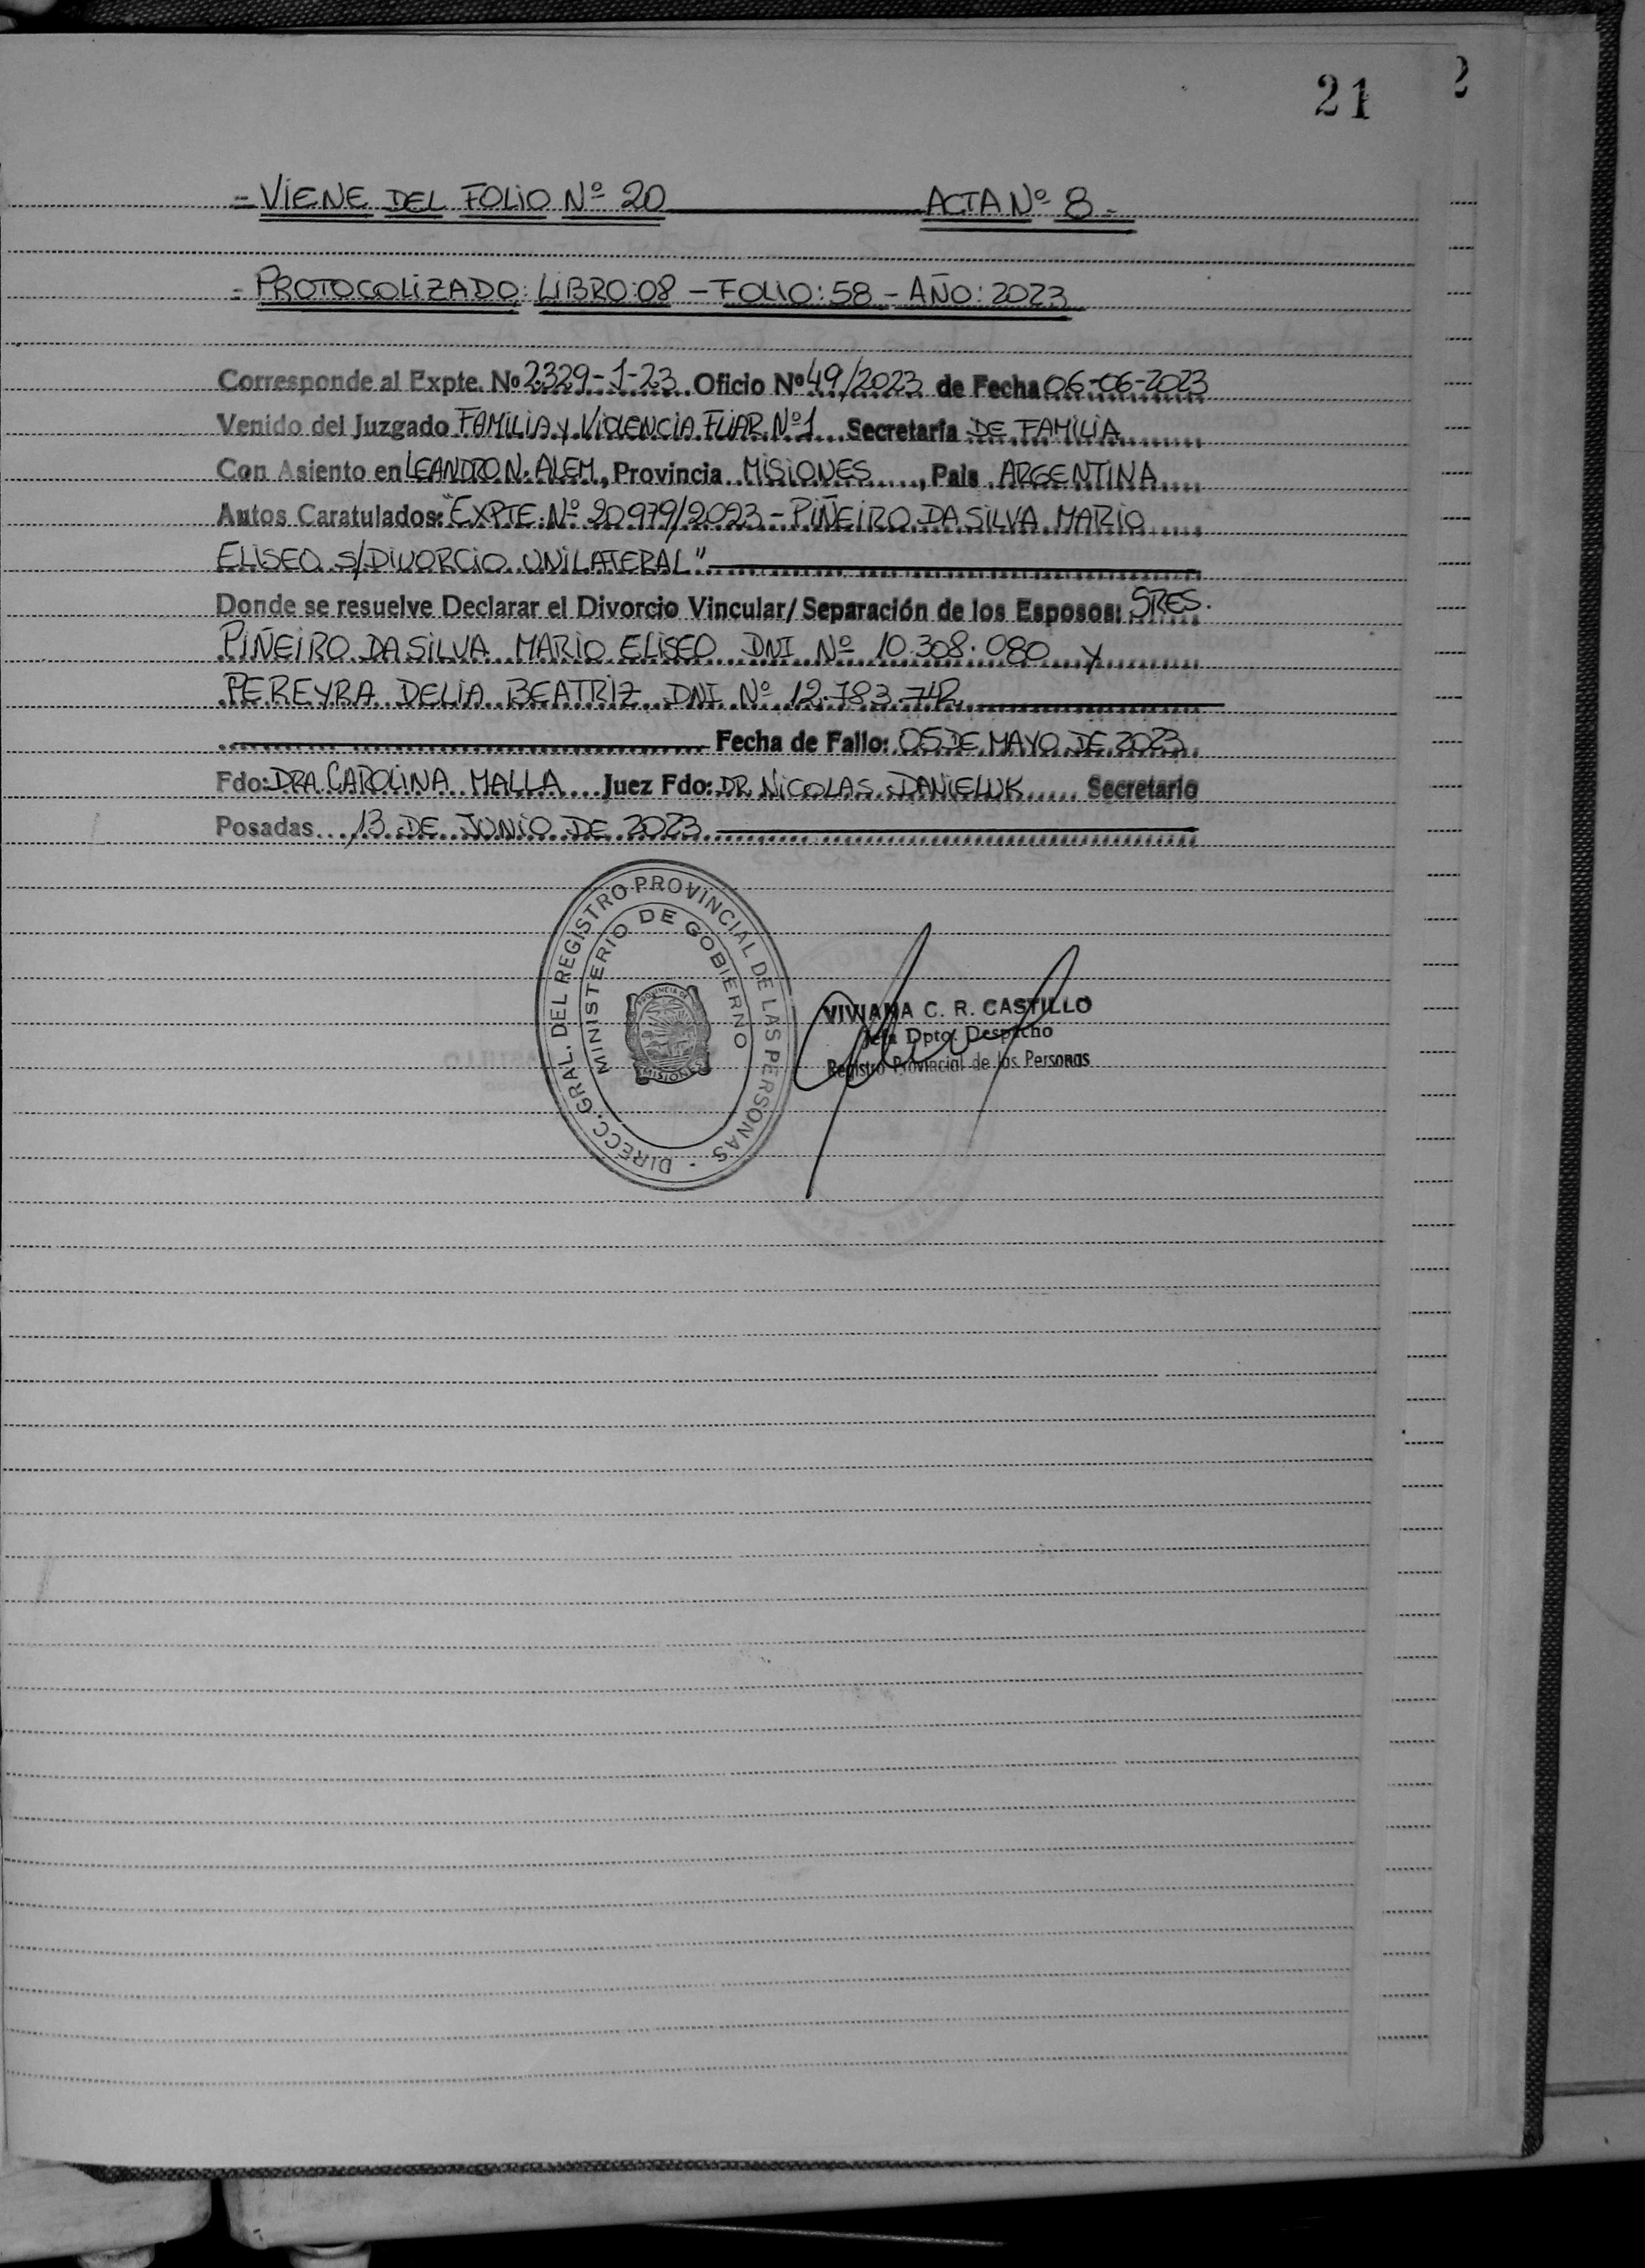 21
2
= VIENE DEL FOLIO Nº 20 ACTA Nº 8 -
= PROTOCOLIZADO: LIBRO: 08 - FOLIO: 58 - AÑO: 2023
Corresponde al Expte. Nº 2329-1-23 Oficio Nº 49/2023 de Fecha 06-06-2023
Venido del Juzgado FAMILIA y VIOLENCIA FLIAR. Nº 1 Secretaría DE FAMILIA
Con Asiento en LEANDRO N. ALEM, Provincia MISIONES, País ARGENTINA
Autos Caratulados: "EXPTE. Nº 20979/2023 - PIÑEIRO DA SILVA MARIO
ELISEO S/DIVORCIO UNILATERAL"
Donde se resuelve Declarar el Divorcio Vincular/ Separación de los Esposos: SRES.
PIÑEIRO DA SILVA MARIO ELISEO DNI Nº 10.308.080 y
PEREYRA DELIA BEATRIZ DNI Nº 12.783.742
Fecha de Fallo: 05 DE MAYO DE 2023
Fdo: DRA. CAROLINA MALLA Juez Fdo: DR. NICOLAS DANIELUK Secretario
Posadas, 13 DE JUNIO DE 2023
DIRECC. GRAL. DEL REGISTRO PROVINCIAL DE LAS PERSONAS
MINISTERIO DE GOBIERNO
PROVINCIA DE
MISIONES
VIVIANA C. R. CASTILLO
Jefa Dpto. Despacho
Registro Provincial de las Personas